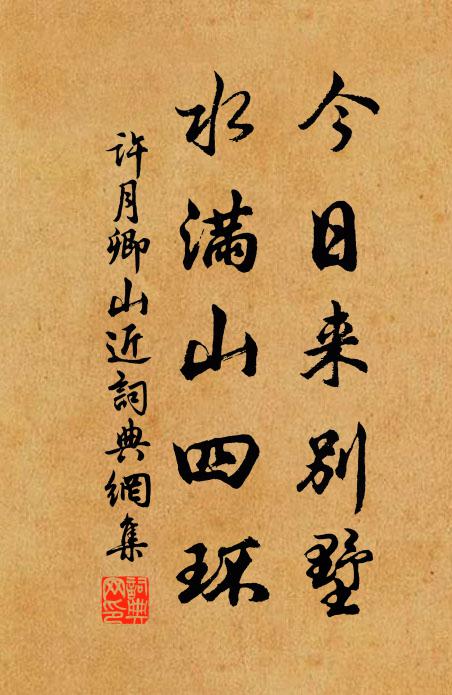 今日来别墅
水满山四环
許月卿山近詞典網集
詞典网印